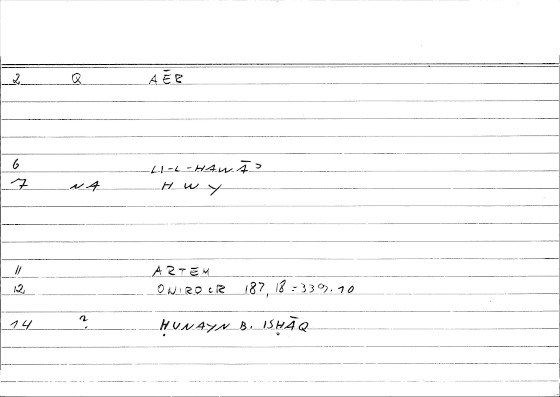 2 Q AĒR
6 LI-L-HAWĀʾ
7 NA HWY
11 ARTEM
12 ONIROCR 187,18=339.10
14 ? ḤUNAYN B. ISḤĀQ